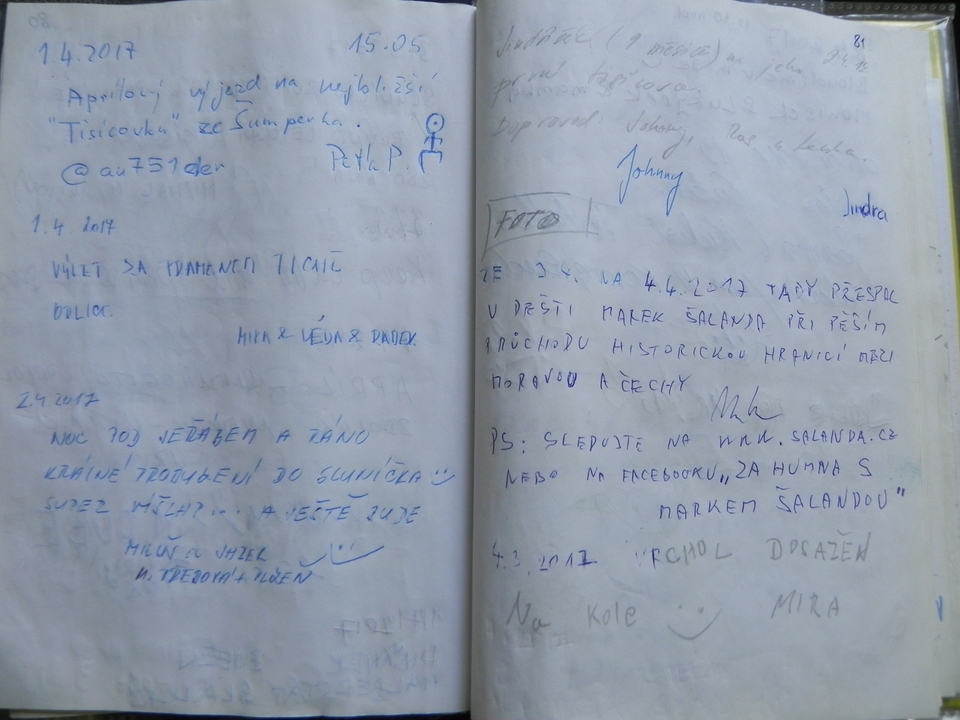 80
1.4.2017 15.05
Aprílový výjezd na nejbližší
"Tisícovku" ze Šumperka.
@au751der Petk P.
1.4. 2017
VÝLET ZA PRAMENEM TICHÉ
MIRA & VÉĎA & RADEK
2.4.2017
NOC POD JEŘÁBEM A RÁNO
KRÁSNÉ PROBUZENÍ DO SLUNÍČKA
SUPER VÝŠLAP... A JEŠTĚ BUDE
81
Jindříšek (9 měsíců) na jeho
první tisícovce
Doprovod: Johnny, a Lenka.
Johnny
Jindra
FOTO
ZE 3.4. NA 4.4.2017 TADY PŘESPAL
V DEŠTI MAREK ŠALANDA PŘI PĚŠÍM
PRŮCHODU HISTORICKOU HRANICÍ MEZI
MORAVOU A ČECHY
PS: SLEDUJTE NA WWW.SALANDA.CZ
NEBO NA FACEBOOKU „ZA HUMNA S
MARKEM ŠALANDOU"
2017 VRCHOL DOSAŽEN
Na kole MIRA